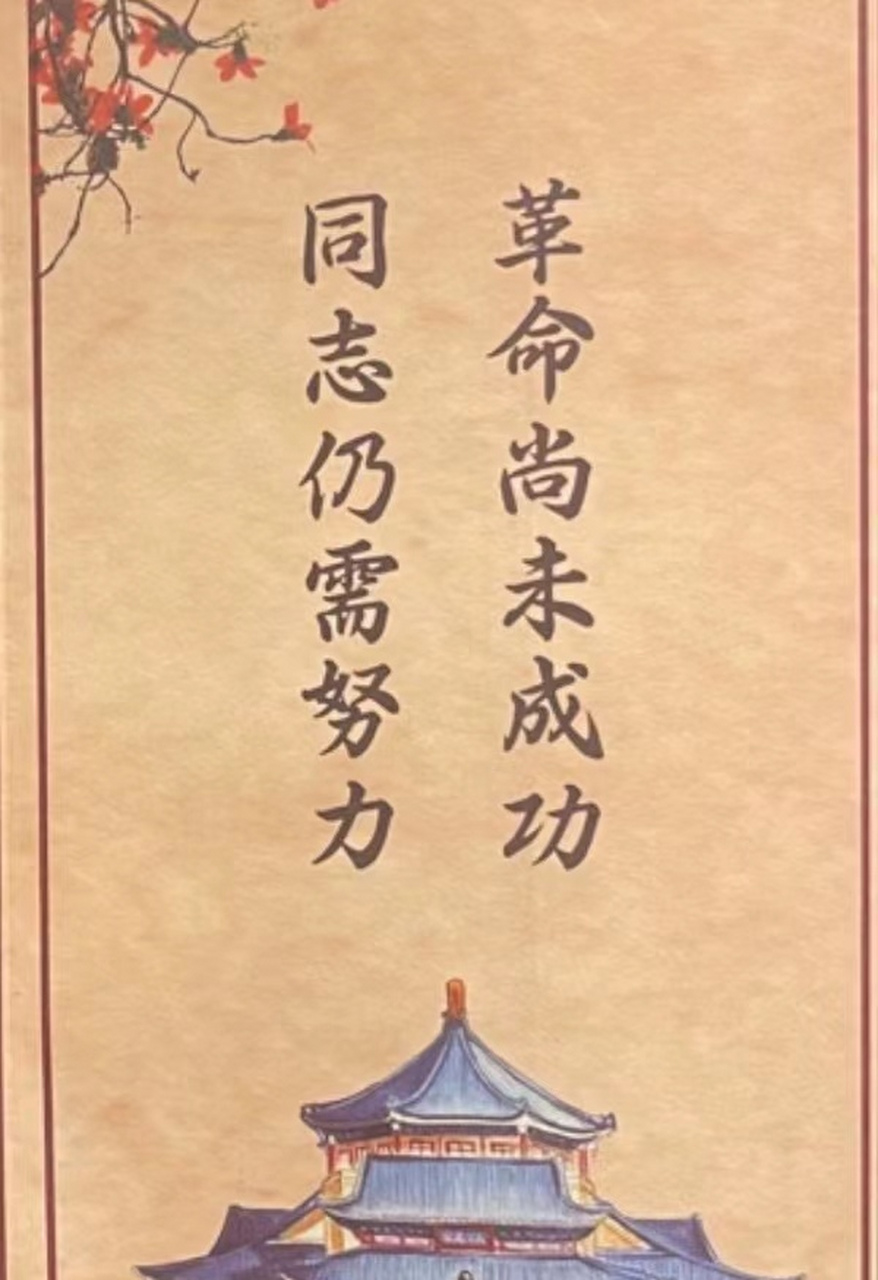 革命尚未成功
同志仍需努力